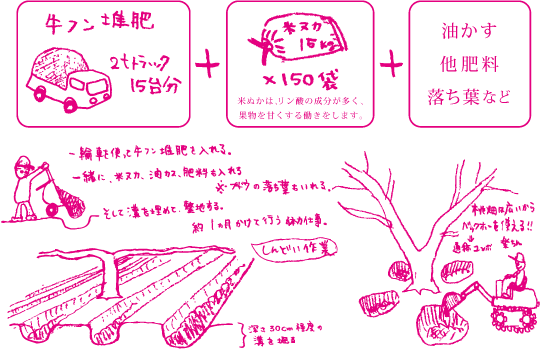 牛フン堆肥
2tトラック
15台分
+
米ヌカ
15kg
×150袋
米ぬかは、リン酸の成分が多く、
果物を甘くする働きをします。
+
油かす
他肥料
落ち葉など
一輪車を使って牛フン堆肥を入れる。
一緒に、米ヌカ、油カス、肥料も入れる
※ブドウの落ち葉もいれる。
そして溝を埋めて、整地する。
約1ヵ月かけて行う体力仕事。
しんどい作業
深さ30cm程度の
溝を掘る
桃畑は広いから
バックホーを使える!!
通称ユンボ
楽ちん